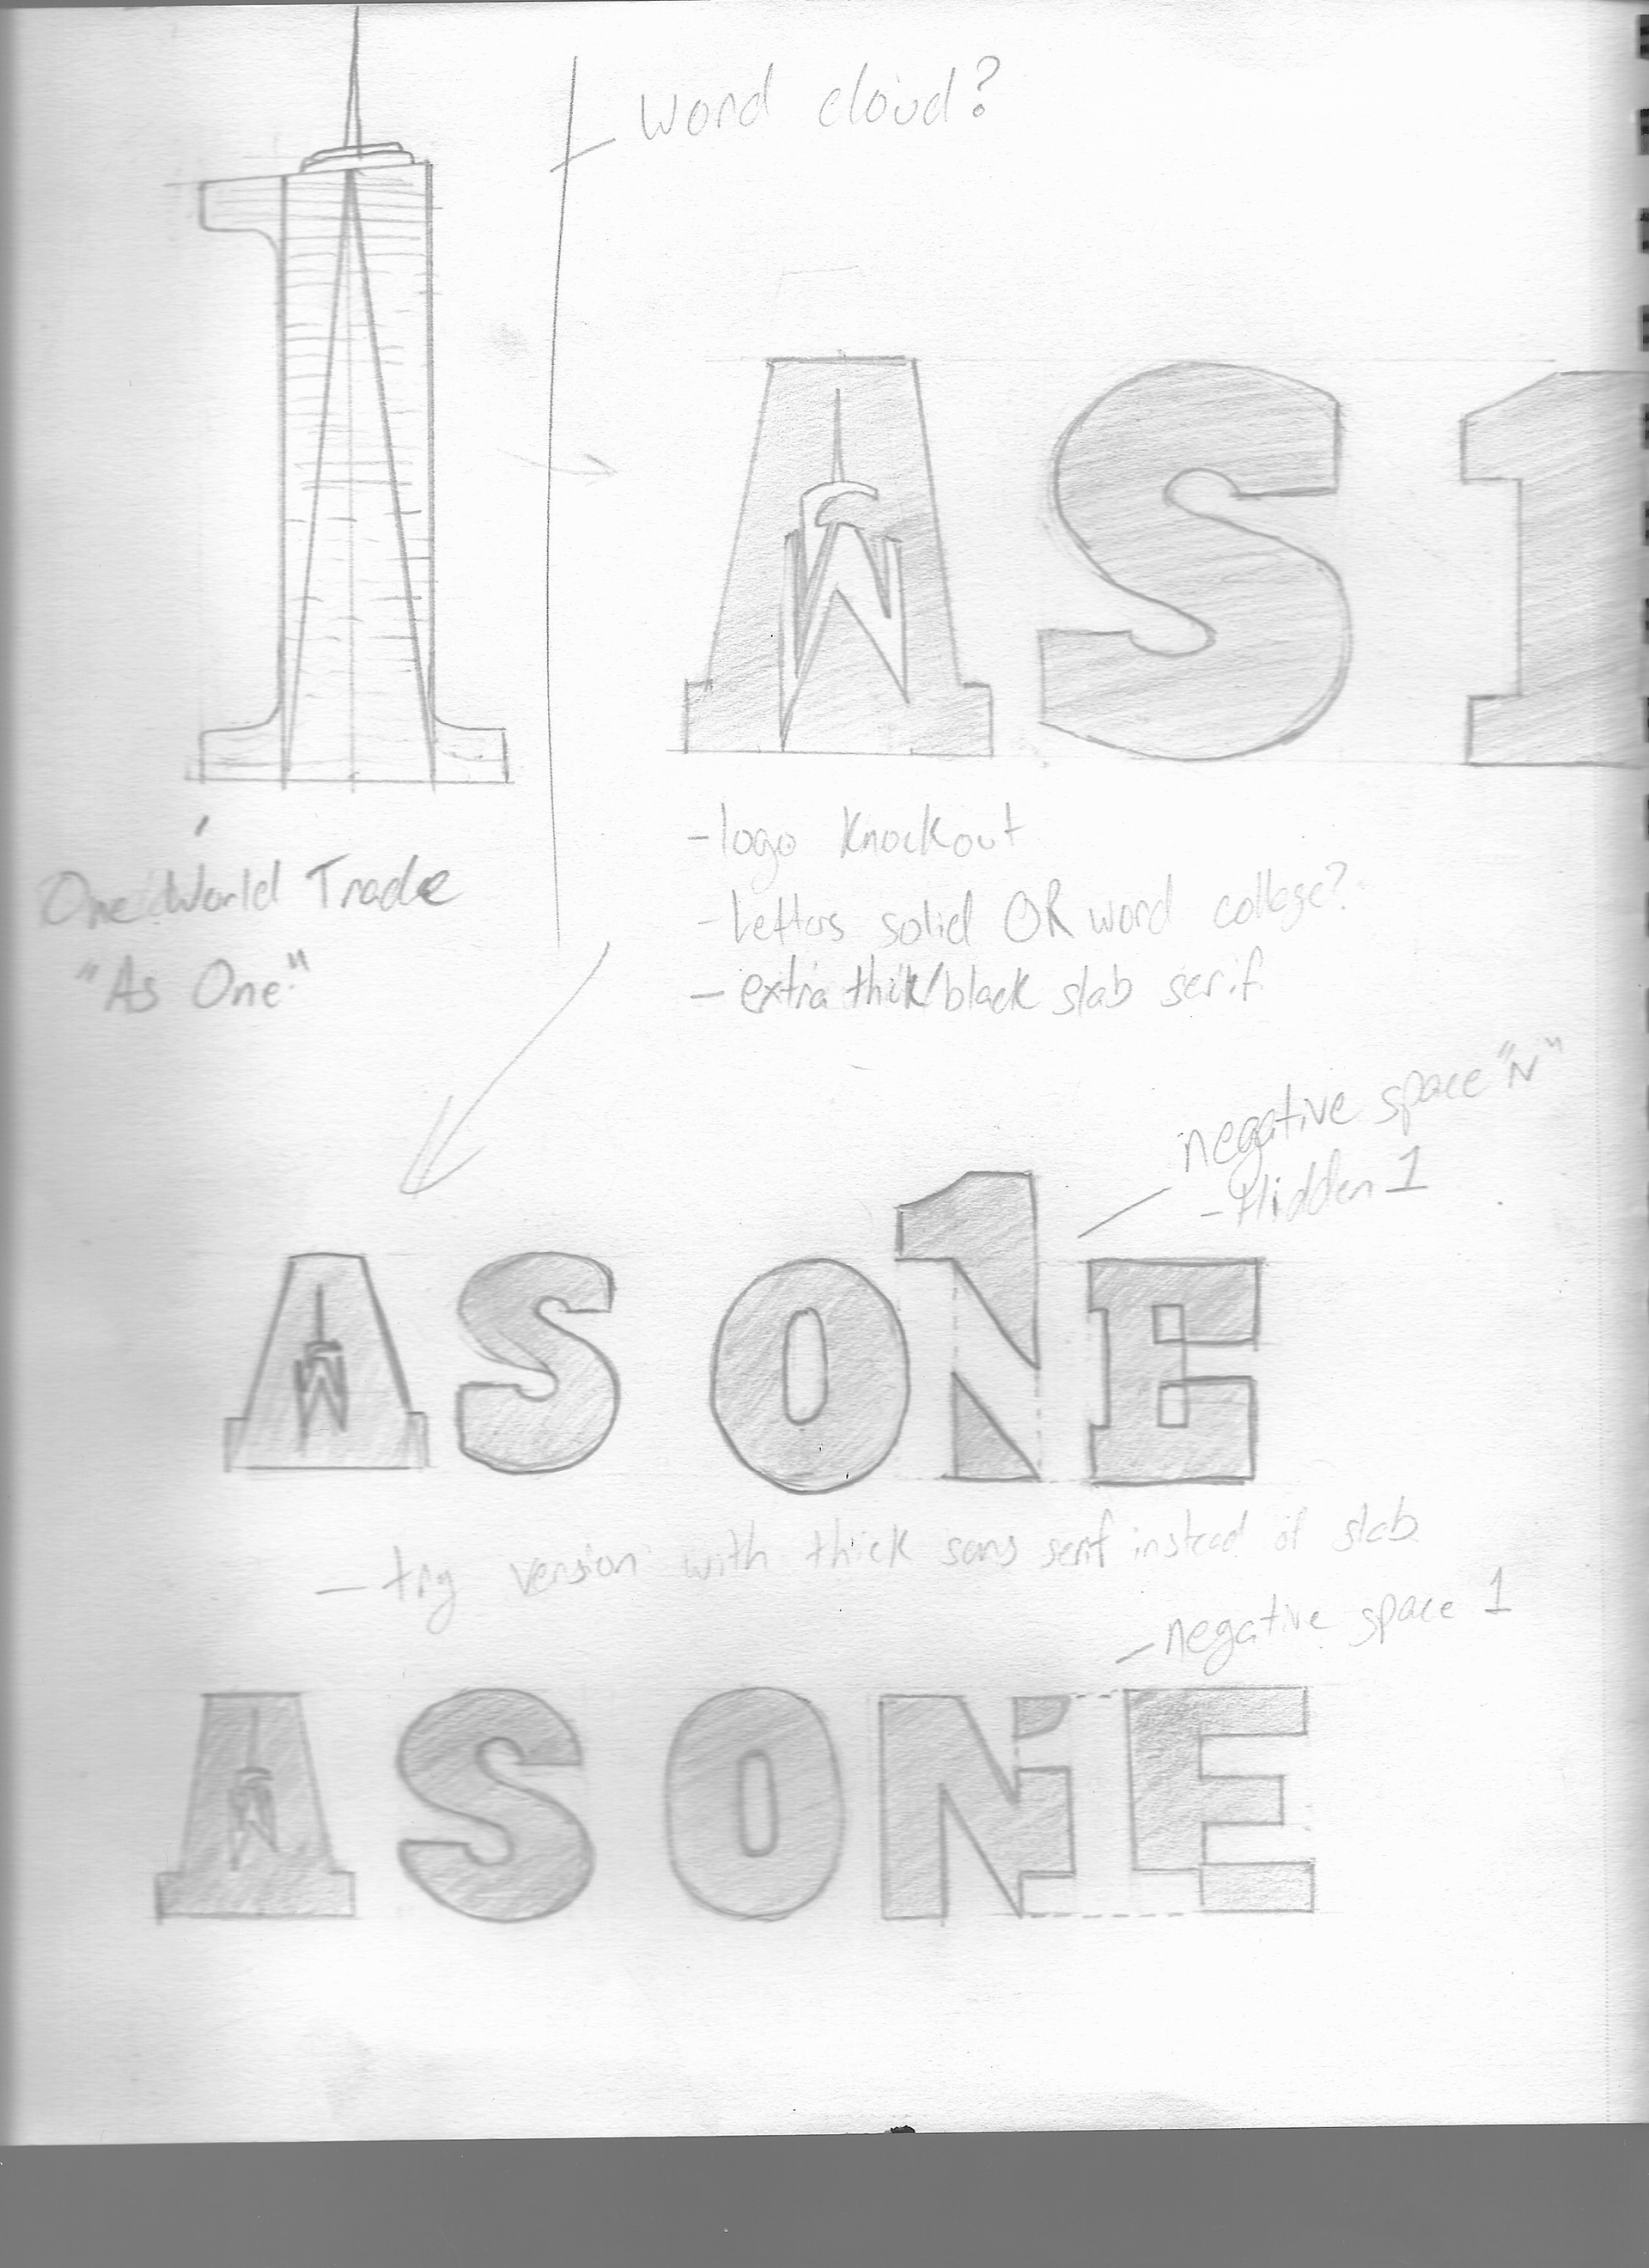 word cloud?
AS1
One World Trade
"As One"
-logo Knockout
-Letters solid OR word collage?
- extra thik/black slab serif
negative space "N"
-Hidden 1
AS ONE
- try version with thick sans serif instead of slab
- negative space 1
AS ONE